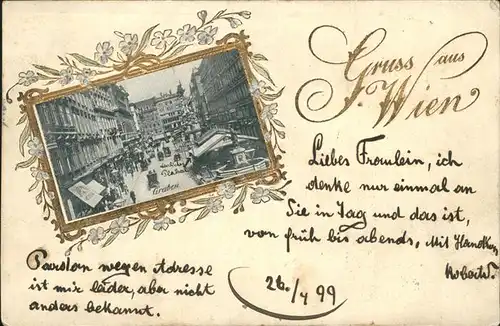 Gruss aus
Wien
Graben
Liebes Fräulein, ich
denke nur einmal an
Sie in Tag und das ist,
von früh bis abends, Mit Handkuss
Robert
26./4 99
Pardon wegen Adresse
ist mir leider, aber nicht
anders bekannt.